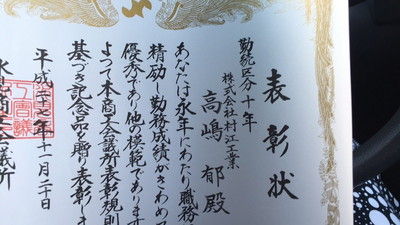 表彰状
勤続区分十年
株式会社村江工業
高嶋郁殿
あなたは永年にわたり職務
精励し勤務成績がきわめ
優秀であり他の模範であります
よつて本商工会議所表彰規則
基づき記念品を贈り表彰し
平成二十七年十一月二十日
商工会議所